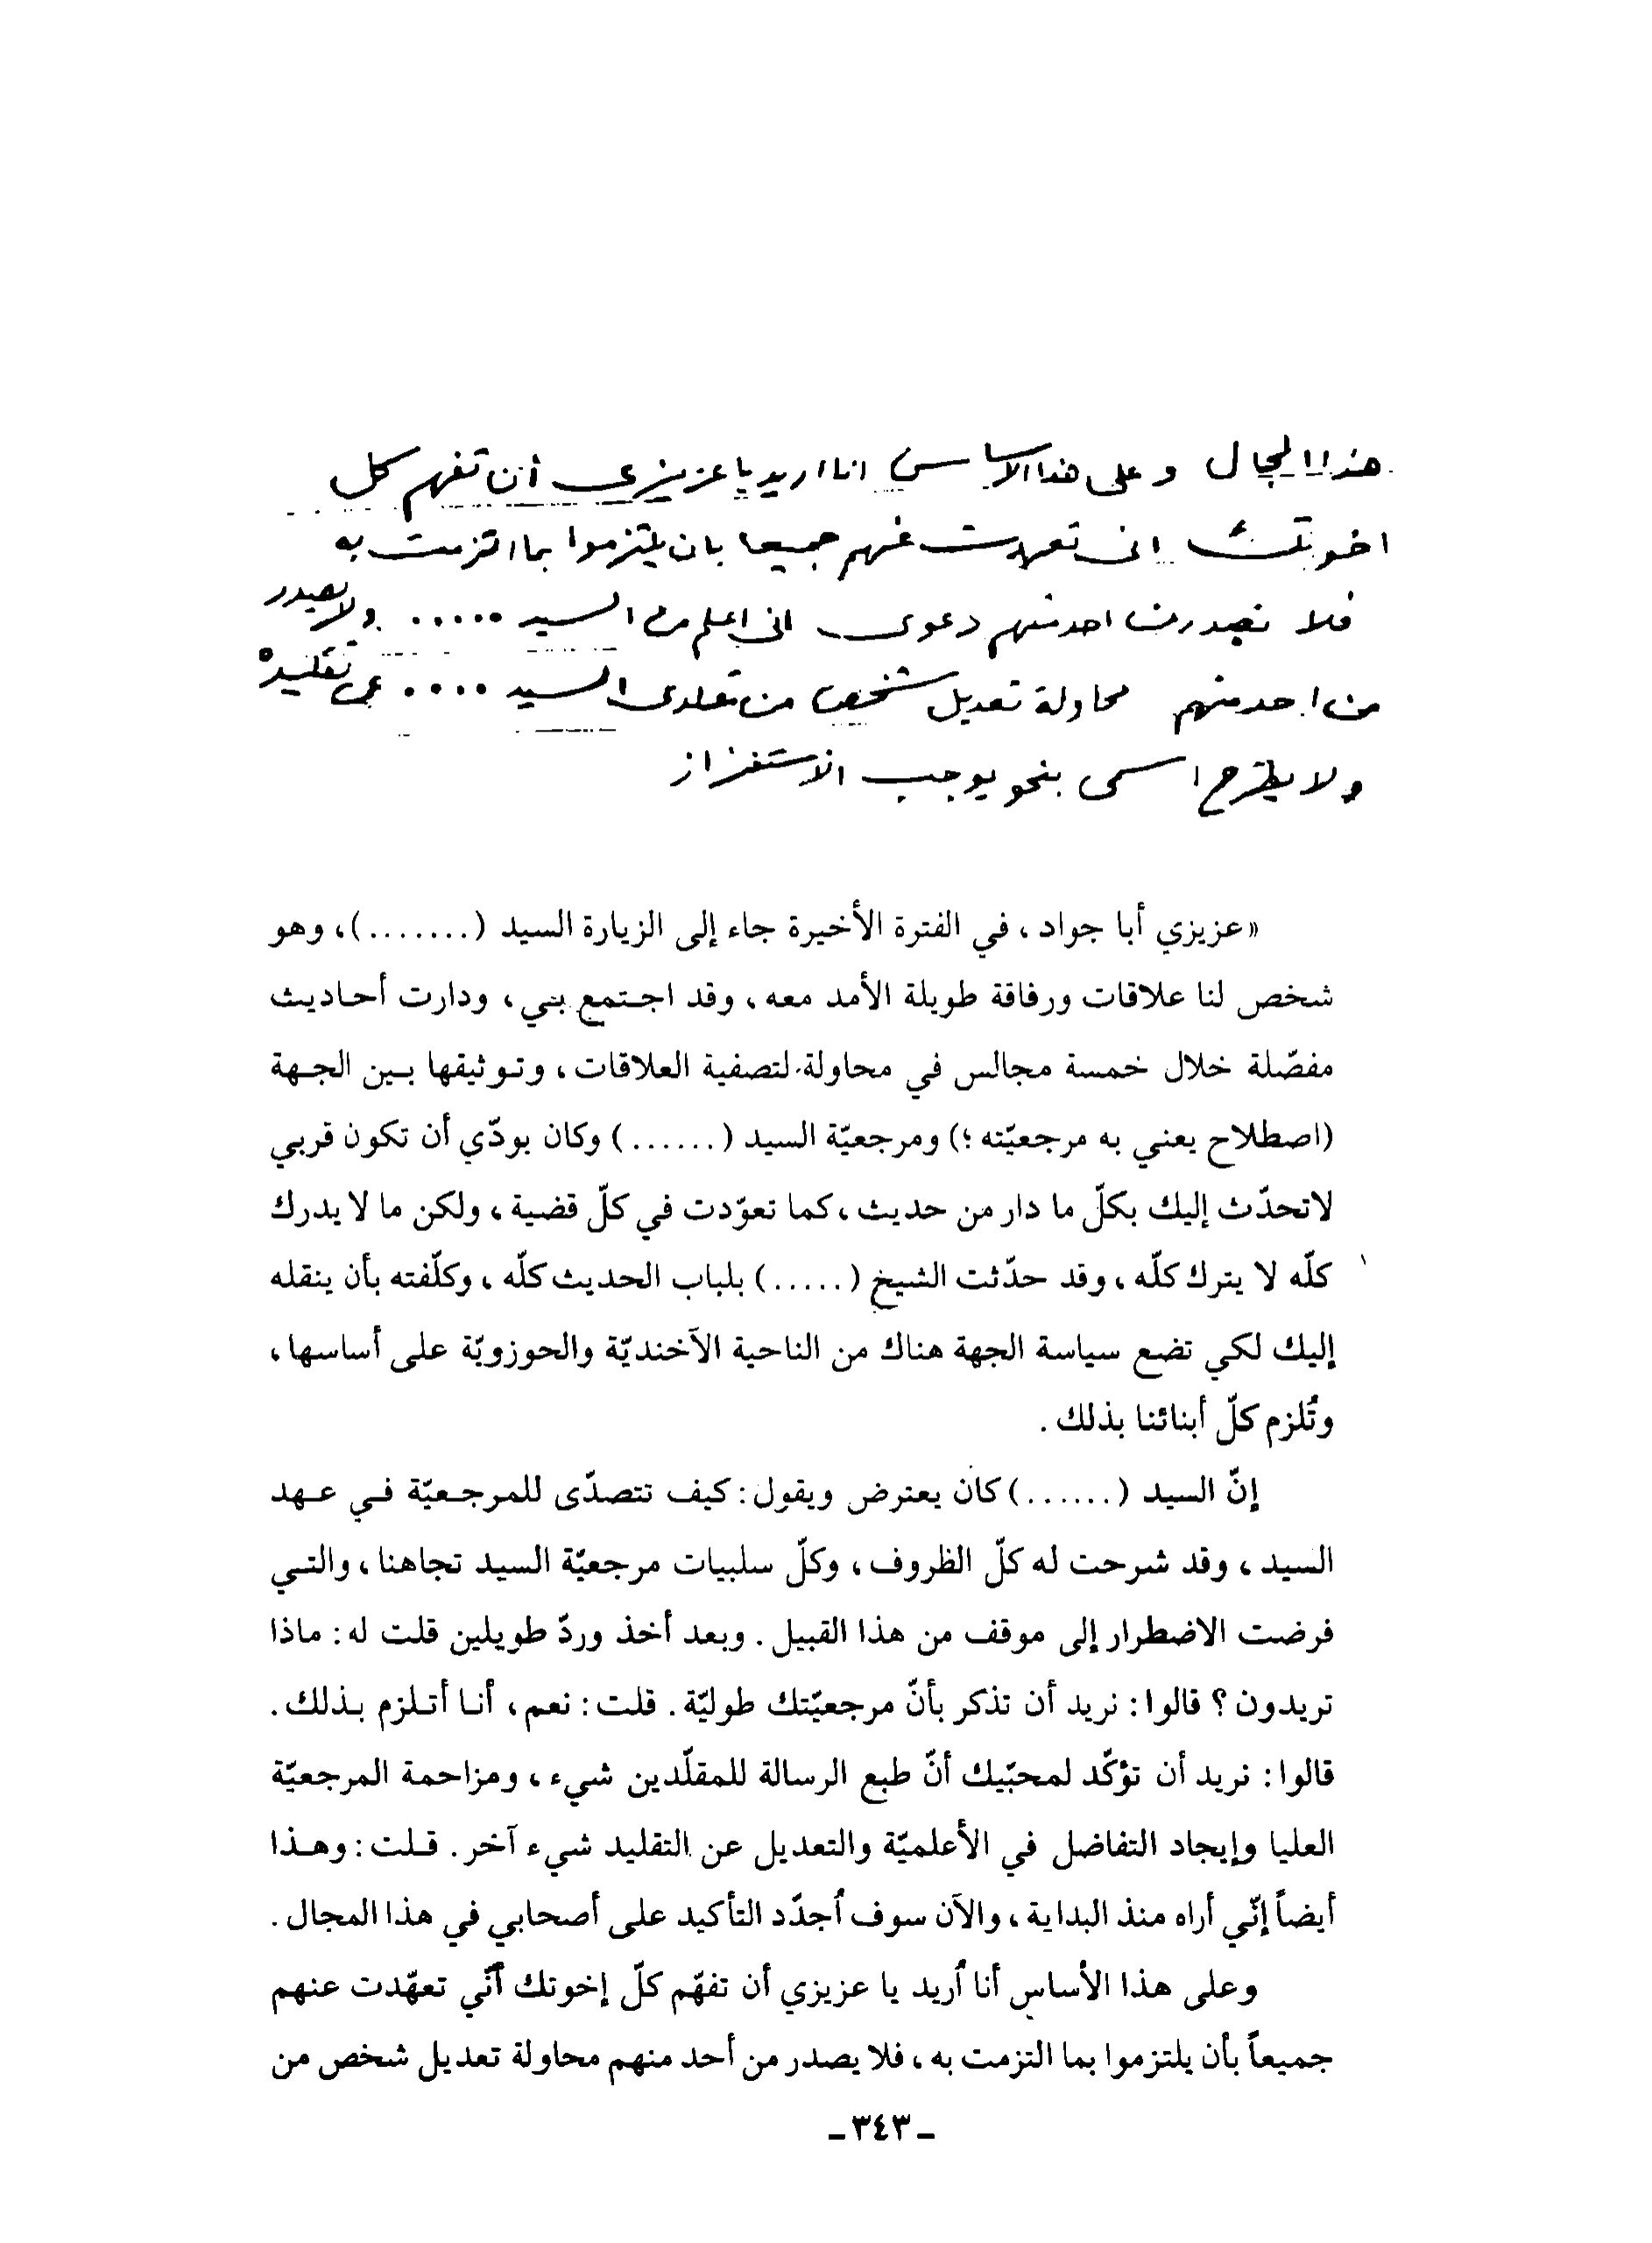 هذا المجال وعلى هذا الاساس انا اريد يا عزيزي أن تفهم كل
اخوتك اني تعهدت عنهم جميعا بان يلتزموا بما التزمت به
فلا تصدرن احد منهم دعوى اني اعلم من السيد ..... ولا يصدر
من احد منهم محاولة تعديل شخص من مقلدى السيد .... عن تقليده
ولا يطرح اسمى بنحو يوجب الاستفزاز
«عزيزي أبا جواد ، في الفترة الأخيرة جاء إلى الزيارة السيد (.......)، وهو
شخص لنا علاقات ورفاقة طويلة الأمد معه ، وقد اجتمع بي ، ودارت أحاديث
مفصّلة خلال خمسة مجالس في محاولة لتصفية العلاقات ، وتوثيقها بين الجهة
(اصطلاح يعني به مرجعيّته ؛) ومرجعيّة السيد (......) وكان بودّي أن تكون قربي
لاتحدّث إليك بكلّ ما دار من حديث ، كما تعوّدت في كلّ قضية ، ولكن ما لا يدرك
كلّه لا يترك كلّه ، وقد حدّثت الشيخ (.....) بلباب الحديث كلّه ، وكلّفته بأن ينقله
إليك لكي تضع سياسة الجهة هناك من الناحية الآخنديّة والحوزويّة على أساسها ،
وتُلزم كلّ أبنائنا بذلك .
إنّ السيد (......) كان يعترض ويقول : كيف تتصدّى للمرجعيّة في عهد
السيد ، وقد شرحت له كلّ الظروف ، وكلّ سلبيات مرجعيّة السيد تجاهنا ، والتي
فرضت الاضطرار إلى موقف من هذا القبيل . وبعد أخذ وردّ طويلين قلت له : ماذا
تريدون ؟ قالوا : نريد أن تذكر بأنّ مرجعيّتك طوليّة . قلت : نعم ، أنا أتلزم بذلك .
قالوا : نريد أن تؤكّد لمحبّيك أنّ طبع الرسالة للمقلّدين شيء ، ومزاحمة المرجعيّة
العليا وإيجاد التفاضل في الأعلميّة والتعديل عن التقليد شيء آخر . قلت : وهذا
أيضاً إنّي أراه منذ البداية ، والآن سوف اُجدّد التأكيد على أصحابي في هذا المجال .
وعلى هذا الأساس أنا اُريد يا عزيزي أن تفهّم كلّ إخوتك أنّي تعهّدت عنهم
جميعاً بأن يلتزموا بما التزمت به ، فلا يصدر من أحد منهم محاولة تعديل شخص من
ـ ٣٤٣ ـ